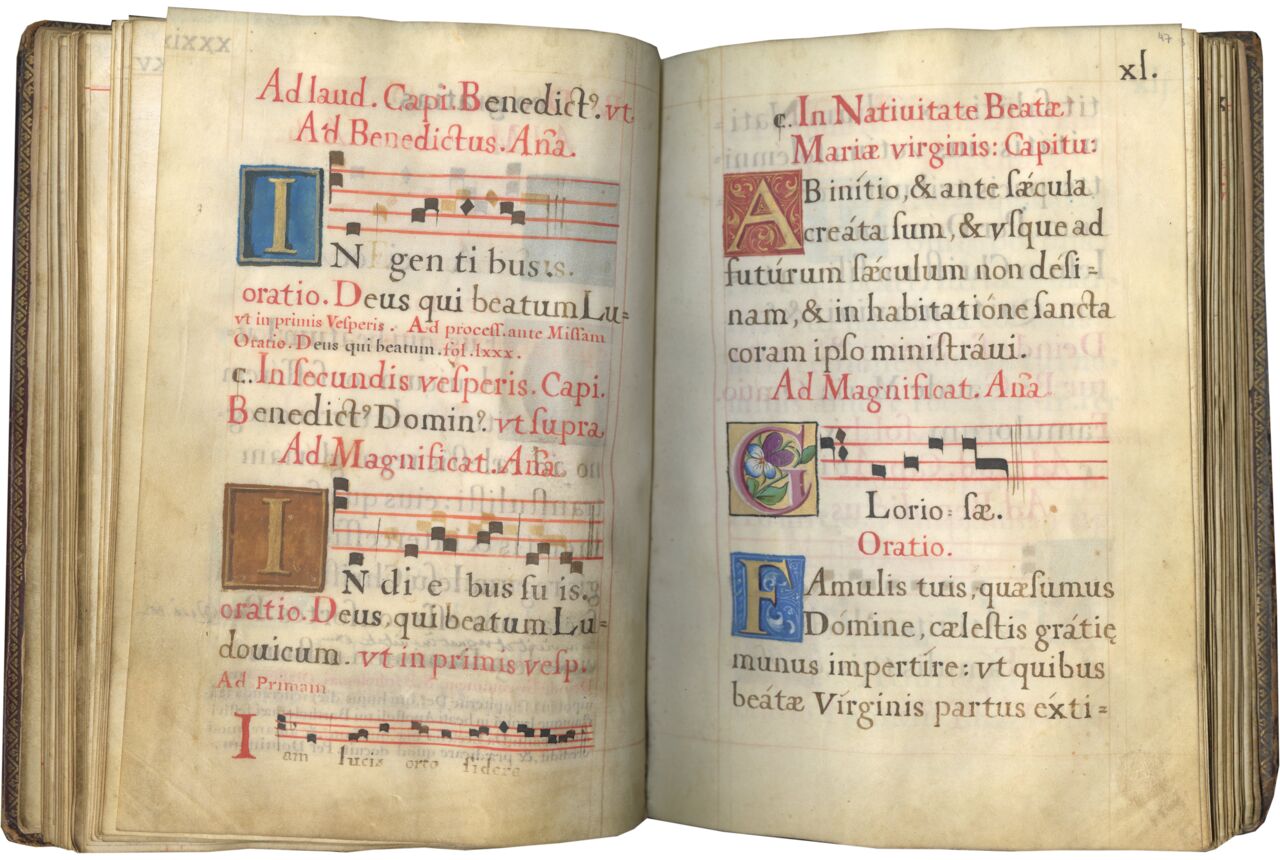 Ad laud. Capi. Benedict⁹. vt
Ad Benedictus. Aña.
IN gen ti bus.
oratio. Deus qui beatum Lu=
vt in primis Vesperis. Ad process. ante Missam
Oratio. Deus qui beatum. fol. lxxx.
c. In secundis vesperis. Capi.
Benedict⁹ Domin⁹. vt supra
Ad Magnificat. Aña.
IN di e bus su is.
oratio. Deus, qui beatum Lu=
douicum. vt in prímis vesp.
Ad Primam
Iam lucis orto sidere
47
xl.
c. In Natiuitate Beatæ
Mariæ virginis: Capitu:
AB inítio, & ante sǽcula
creáta sum, & vsque ad
futúrum sǽculum non dési=
nam, & in habitatióne sancta
coram ipso ministráui.
Ad Magnificat. Aña.
GLorio= sæ.
Oratio.
FAmulis tuis, quæsumus
Dómine, cælestis grátię
munus impertíre: vt quibus
beátæ Vírginis partus éxti=